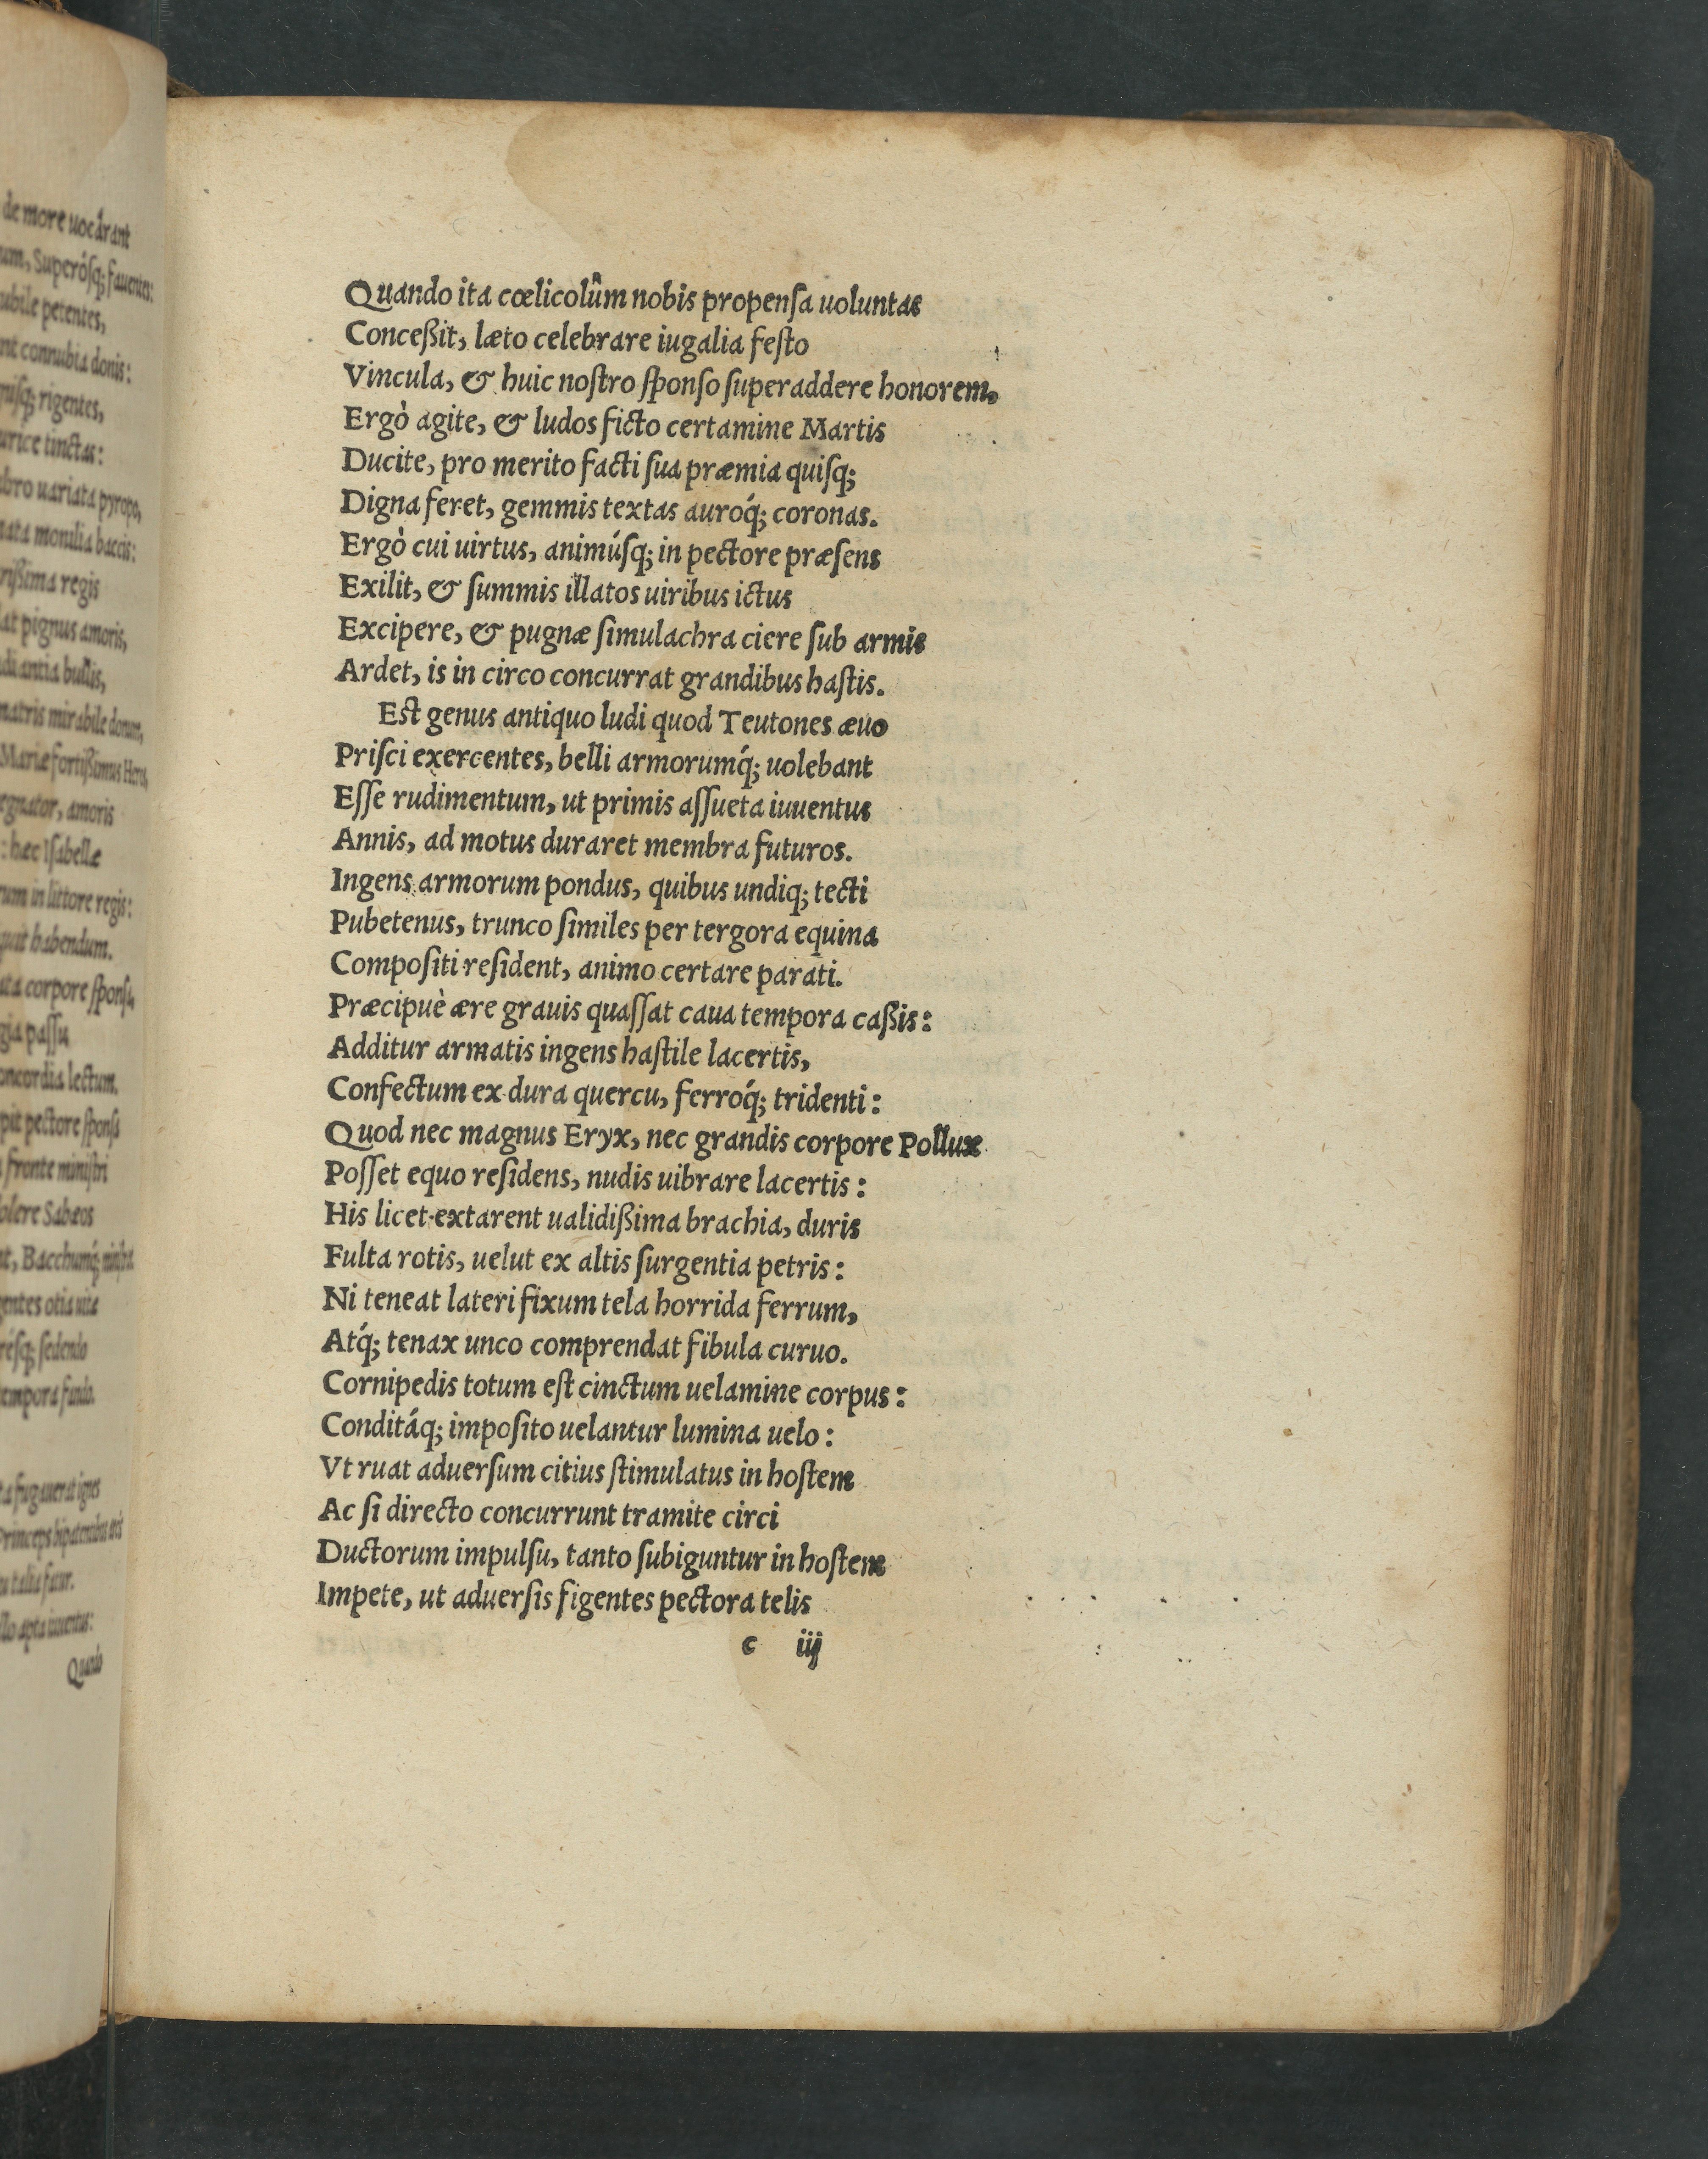 de more uocârant
um, Superósq; fauentes:
ubile petentes,
nt connubia donis:
rigentes,
urice tinctas:
bro uariata pyropo,
nata monilia baccis:
rißima regis
at pignus amoris,
diantia bullis,
matris mirabile donum,
Mariæ fortißimus Heros,
egnator, amoris
: hæc Isabellæ
rum in littore regis:
habendum.
ata corpore sponsa,
gia passu
oncordia lectum.
pit pectore sponsa
fronte ministri
olere Sabæos
nt, Bacchumq́;
gentes otia uitæ
résq; sedendo
tempora fando.
ta fugauerat ignes
Princeps bipatentibus
talia fatur.
llo apta iuuentus:
Quando
Quando ita cœlicolûm nobis propenſa uoluntas
Conceßit, læto celebrare iugalia feſto
Vincula, & huic noſtro ſponſo ſuperaddere honorem.
Ergò agite, & ludos ficto certamine Martis
Ducite, pro merito facti ſua præmia quiſq;
Digna feret, gemmis textas auroq́; coronas.
Ergò cui uirtus, animúſq; in pectore præſens
Exilit, & ſummis illatos uiribus ictus
Excipere, & pugnæ ſimulachra ciere ſub armis
Ardet, is in circo concurrat grandibus haſtis.
Eſt genus antiquo ludi quod Teutones æuo
Priſci exercentes, belli armorumq́; uolebant
Eſſe rudimentum, ut primis aſſueta iuuentus
Annis, ad motus duraret membra futuros.
Ingens armorum pondus, quibus undiq; tecti
Pubetenus, trunco ſimiles per tergora equina
Compoſiti reſident, animo certare parati.
Præcipuè ære grauis quaſſat caua tempora caßis:
Additur armatis ingens haſtile lacertis,
Confectum ex dura quercu, ferroq́; tridenti:
Quod nec magnus Eryx, nec grandis corpore Pollux
Poſſet equo reſidens, nudis uibrare lacertis:
His licet extarent ualidißima brachia, duris
Fulta rotis, uelut ex altis ſurgentia petris:
Ni teneat lateri fixum tela horrida ferrum,
Atq́; tenax unco comprendat fibula curuo.
Cornipedis totum eſt cinctum uelamine corpus:
Conditáq; impoſito uelantur lumina uelo:
Vt ruat aduerſum citius ſtimulatus in hoſtem
Ac ſi directo concurrunt tramite circi
Ductorum impulſu, tanto ſubiguntur in hoſtem
Impete, ut aduerſis figentes pectora telis
c iij